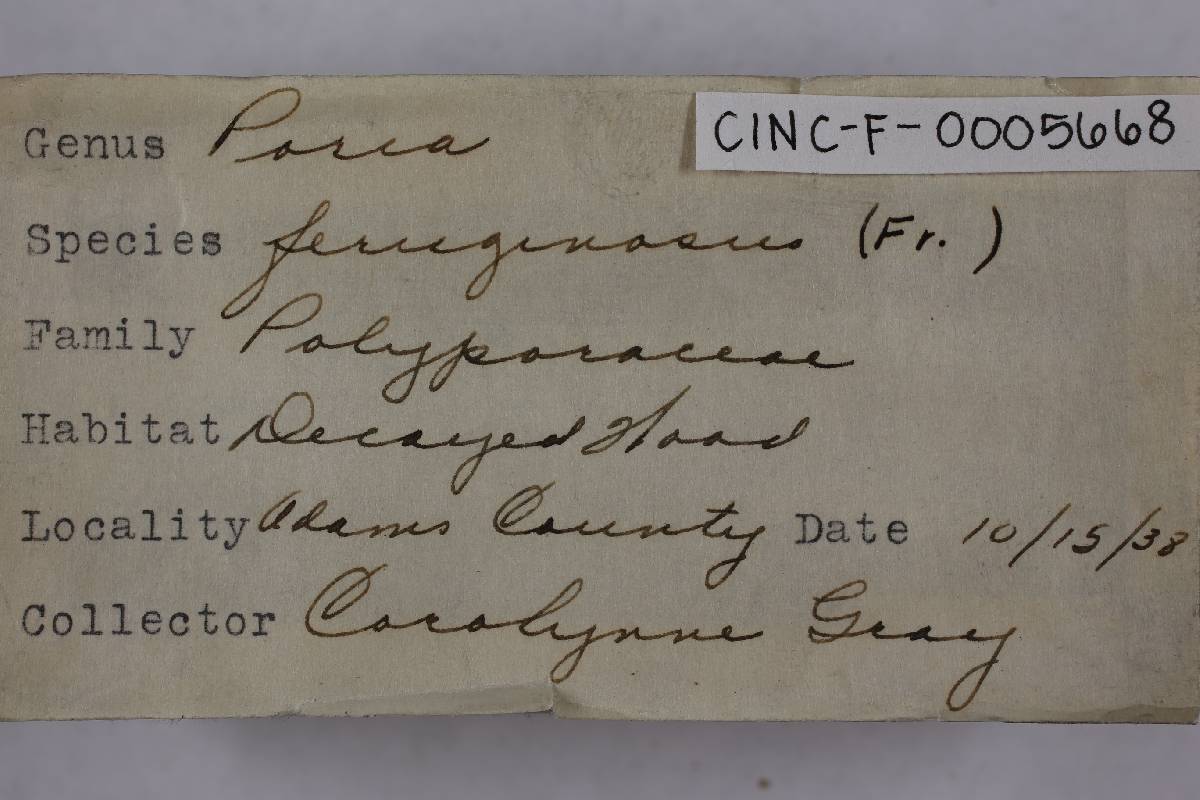 CINC-F-0005668
Genus Poria
Species feruginosus (Fr. )
Family Polyporaceae
Habitat Decayed Wood
Locality Adams County Date 10/15/38
Collector Carolynne Gray